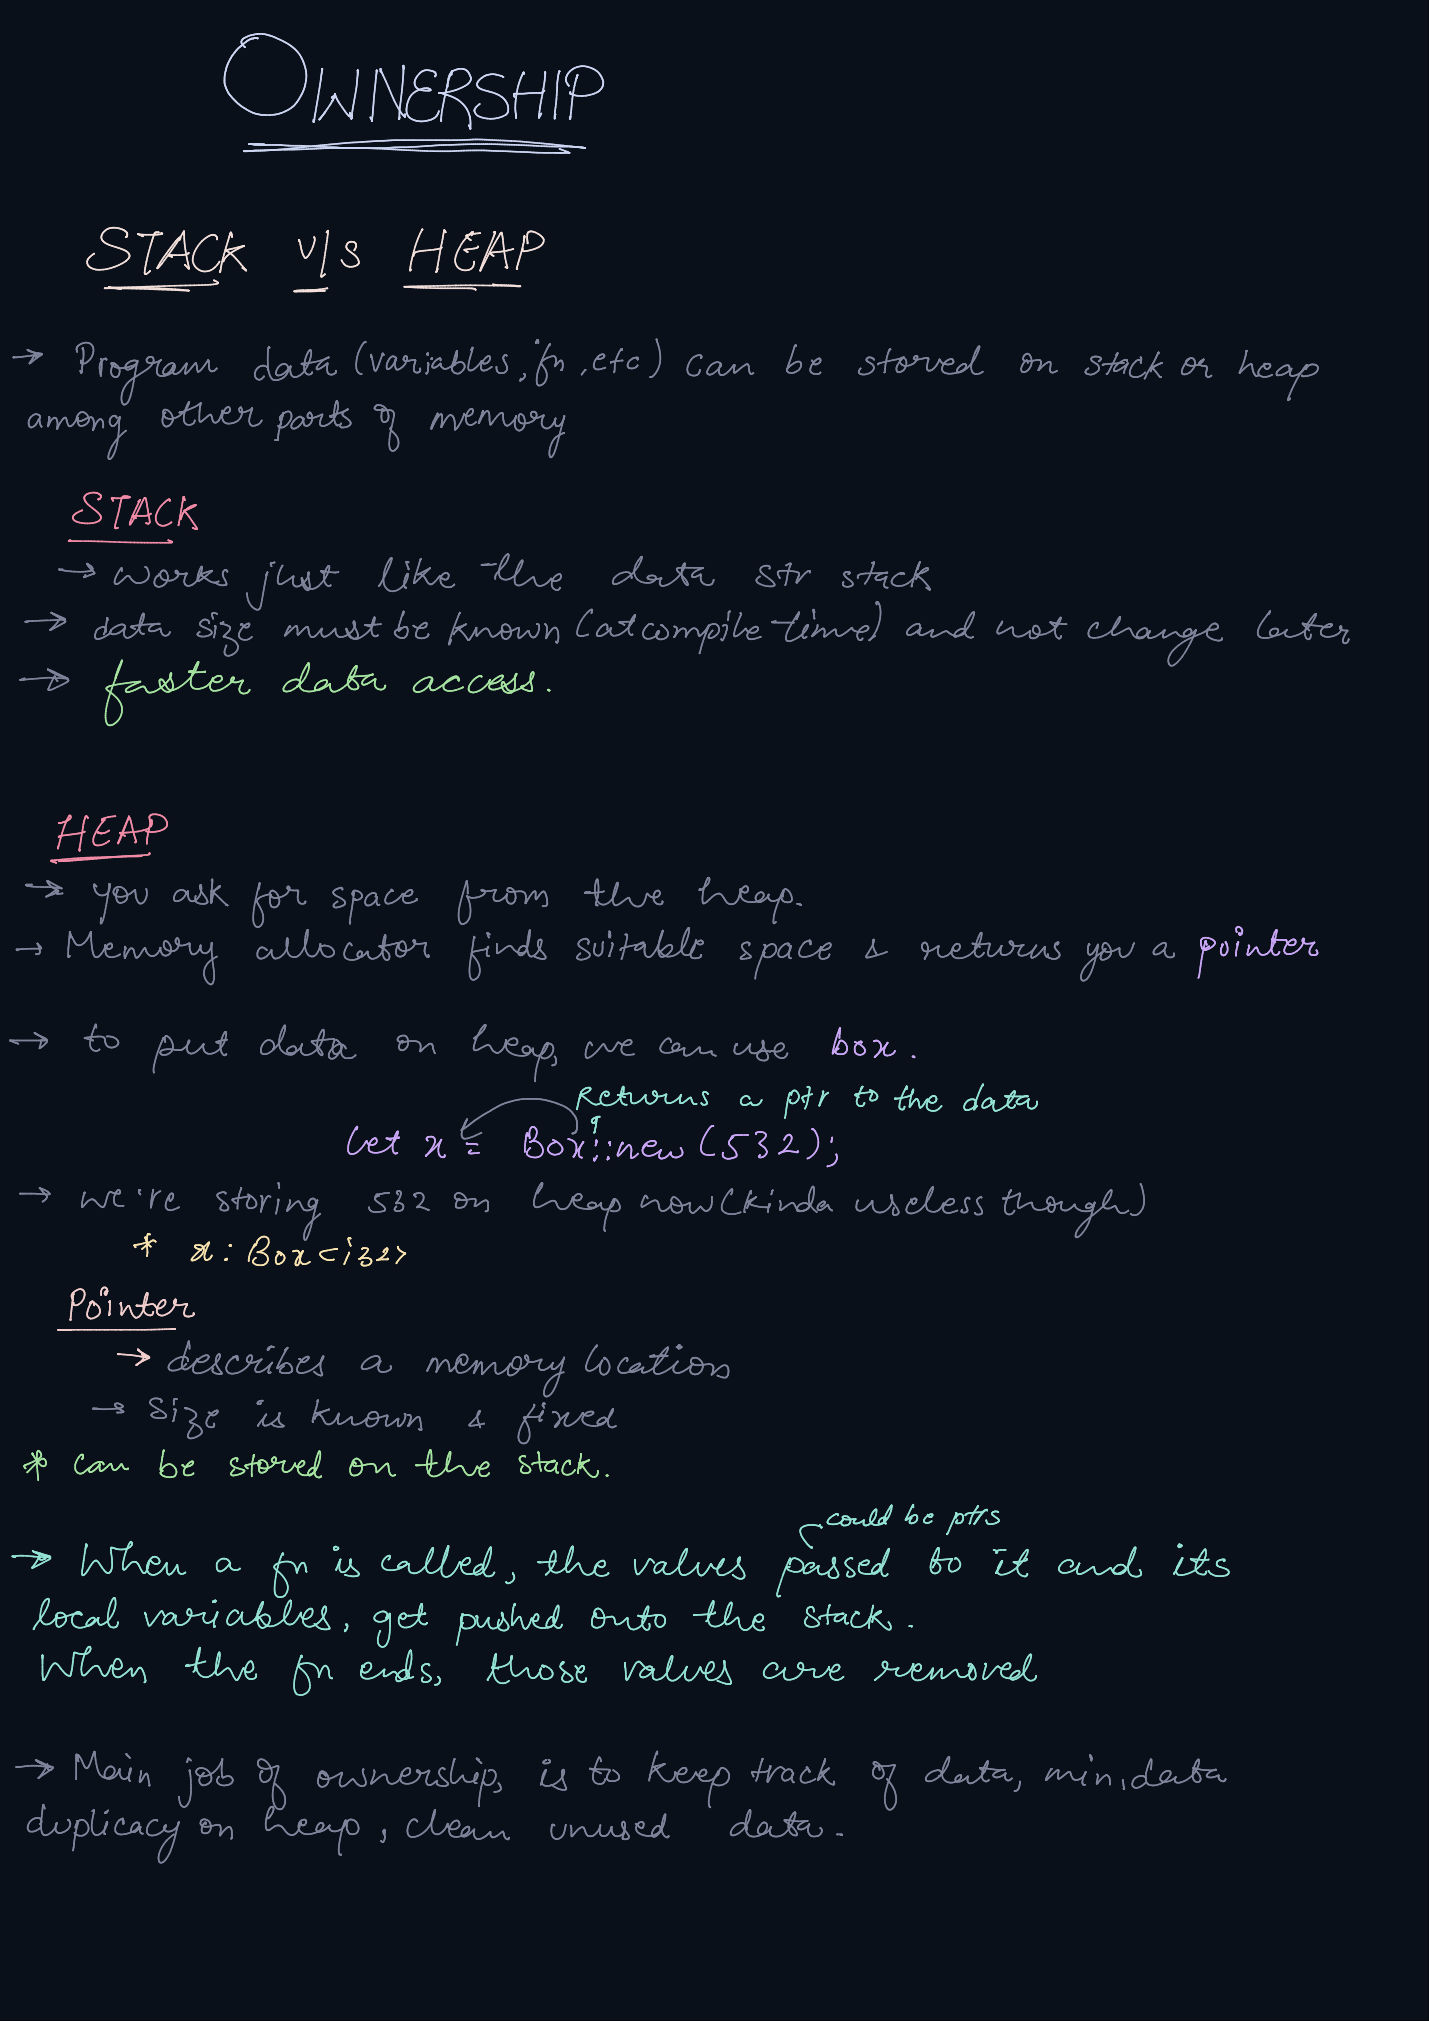 OWNERSHIP
STACK v/s HEAP
→ Program data (variables, fn, etc) can be stored on stack or heap
among other parts of memory
STACK
→ works just like the data str stack
→ data size must be known (at compile time) and not change later
→ faster data access.
HEAP
→ you ask for space from the heap.
→ Memory allocator finds suitable space & returns you a pointer
→ to put data on heap, we can use box.
Returns a ptr to the data
let x = Box::new (532);
→ we're storing 532 on heap now (kinda useless though)
* x: Box<i32>
Pointer
→ describes a memory location
→ Size is known & fixed
* can be stored on the stack.
could be ptrs
→ When a fn is called, the values passed to it and its
local variables, get pushed onto the stack.
When the fn ends, those values are removed
→ Main job of ownership, is to keep track of data, min. data
duplicacy on heap, clean unused data.